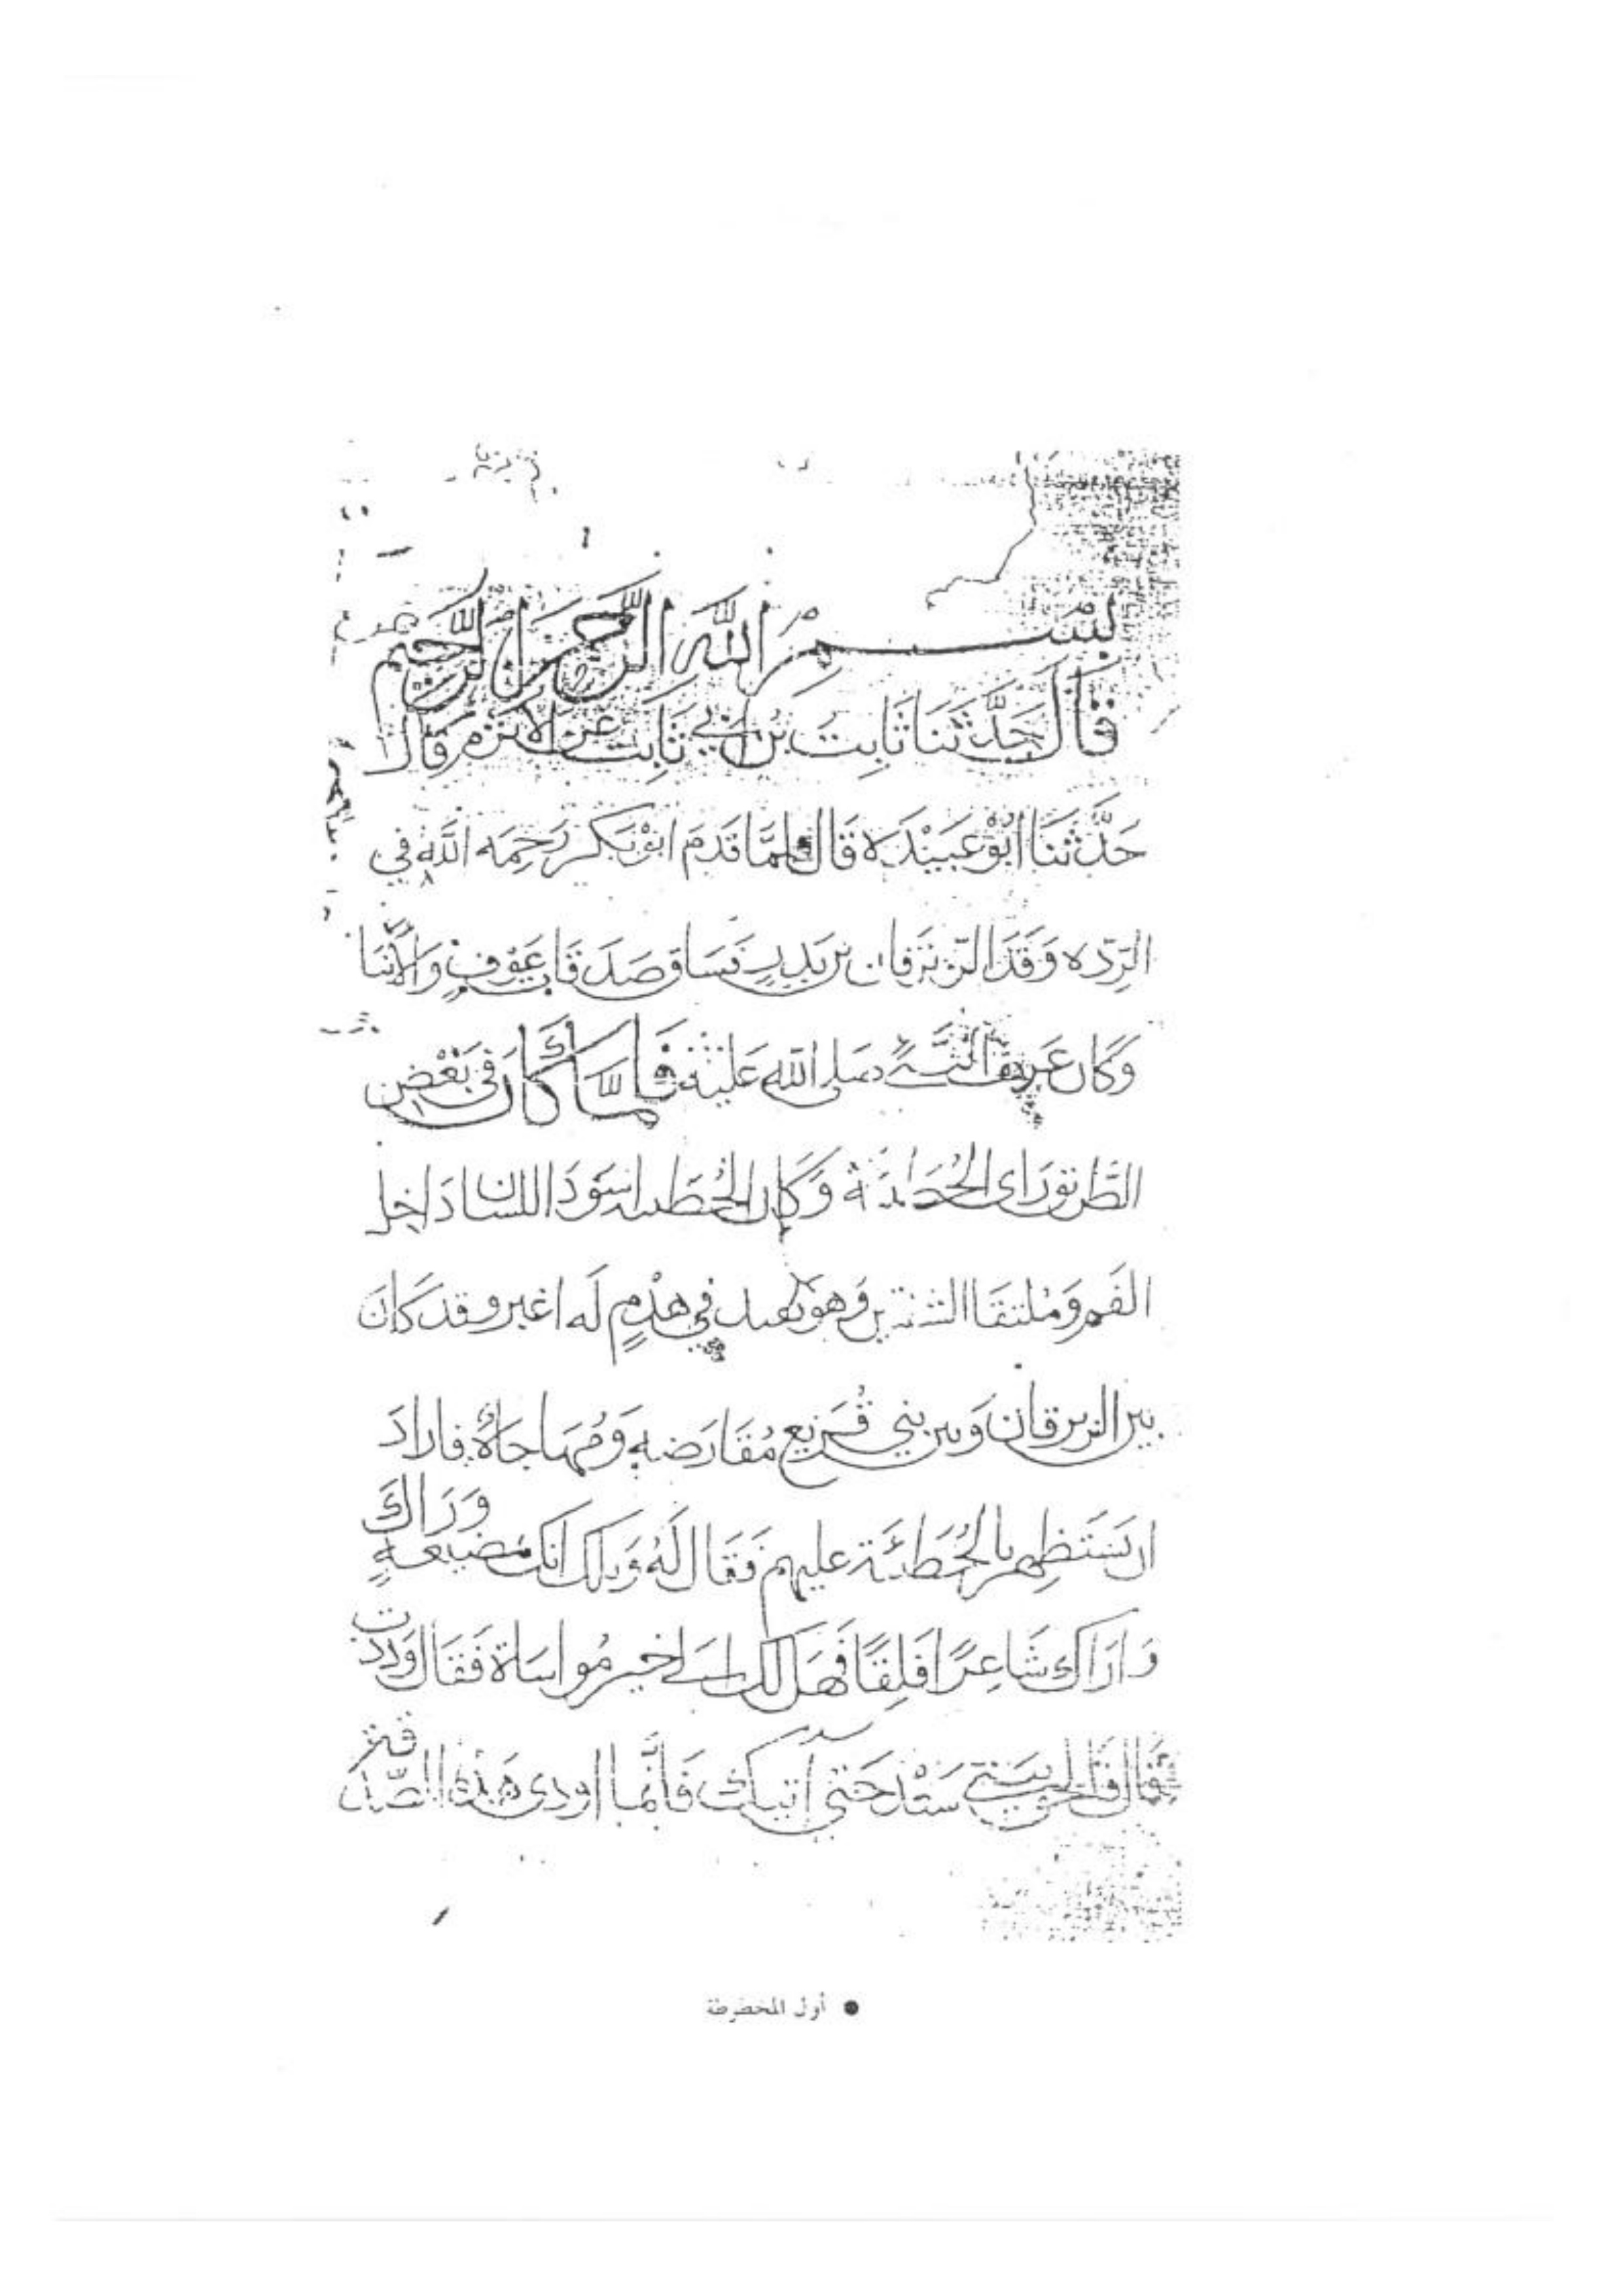 بِسْمِ اللَّهِ الرَّحْمَنِ الرَّحِيمِ
قَالَ حَدَّثَنَا ثَابِتُ بْنُ أَبِي ثَابِت عَن الاثرم قال
حَدَّثَنَا ابُوْ عُبَيْدَه قَالَ لمَّا قَدَمَ ابُوْ بَكر رَحِمَه اللَّه في
الرِّدّه وَفَدَ الزِّبْرَقان بْن بَدرٍ فَسَاقَ صَدَقَاتِ عَوْفٍ وَالأَبْنَا
وَكَان عَرِيفًا النَّبِيّ صَلى اللَّه عَلَيْه فَلمَّا كَانَ فِي بَعْضِ
الطَّريق رَاى الحُطَئَة وَكَان الحُطَئه اسْوَدَ اللسان دَاخِل
الفَم وَمُلتقَا الشدقين وَهو في هِدْمٍ لَه اغبر وقد كَانَ
بين الزبرقان وَبين بني قُرَيْع مُقَارَضه وَمُهَاجاةٌ فارادَ
ان يَسْتَظهِر بالحُطَيْئَة عليهم فَقَال لَهُ وَيلك انك بمضيعةٍ وَرَاك
وَارَاك شَاعِرًا فَلِقًا فَهَل لك الى خير مُواسَاة فَقَال وَدِدت
قَال فَالحق بِبَيْتي سَعْد حَتى آتيك فَانَّما اودى هَذه الصّدقة
● أول المخطوطة